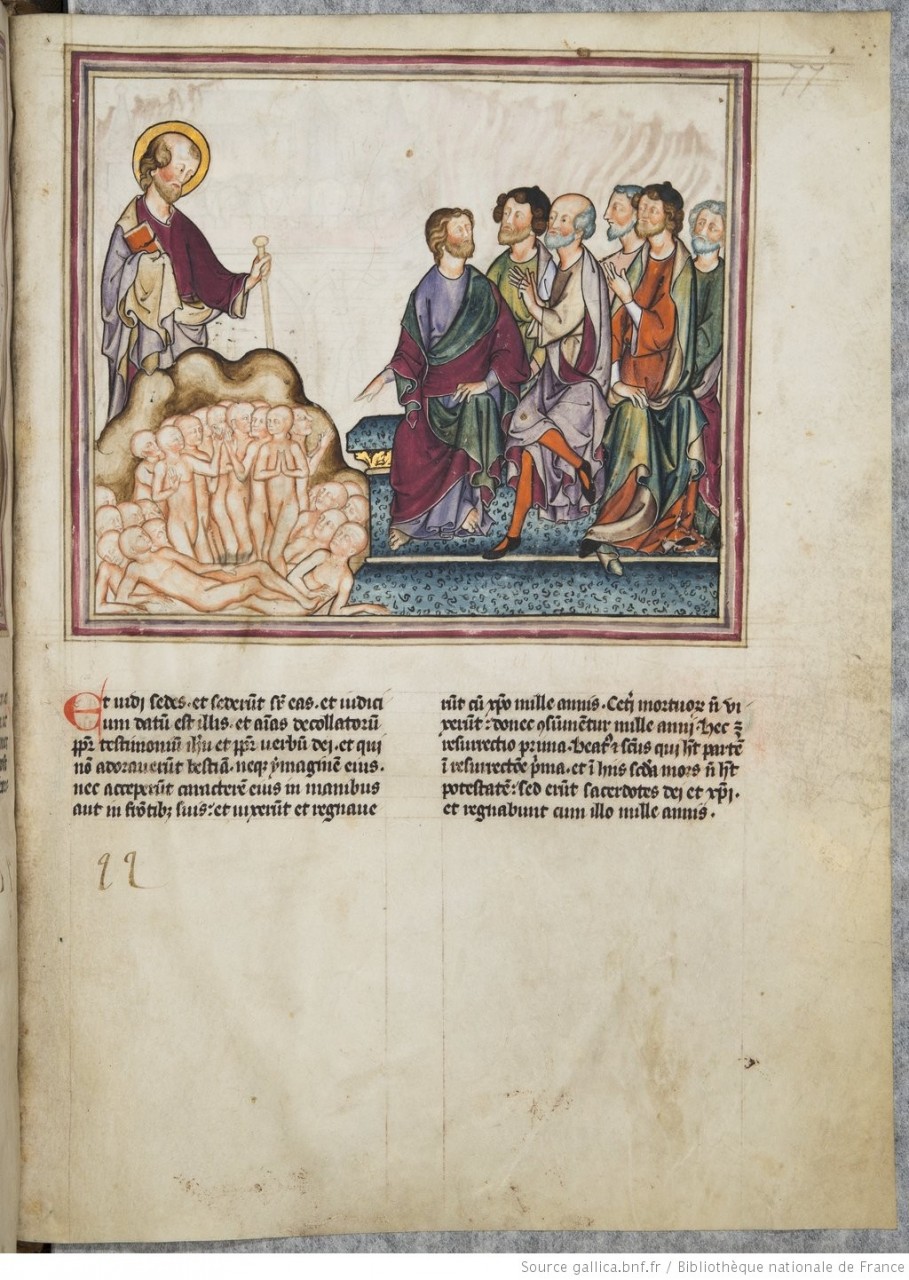 77
Et uidi sedes · et sederūt sr̄ eas · et iudici
um datū est illis · et aīas decollatorū
ꝓpr̄ testimoniū ihū et ꝓpr̄ uerbū dei · et qui
nō adorauerūt bestiā · neqꝫ ymaginē eius ·
nec acceperūt caracterē eius in manibus
aut in frōtibꝫ suis : et uixerūt et regnaue
rūt cū xp̄o mille annis · Cet̄i mortuoꝝ n̄ vi
xerūt : donec ꝯsūmētur mille anni · Hec ē
resurrectio prima · Beatꝰ ⁊ sc̄us qui hȳt partē
ī resurrectōe p̄ma · et ī hiis scd̄a mors n̄ hȳt
potestatē : sed erūt sacerdotes dei et xp̄i ·
et regnabunt cum illo mille annis ·
Source gallica.bnf.fr / Bibliothèque nationale de France